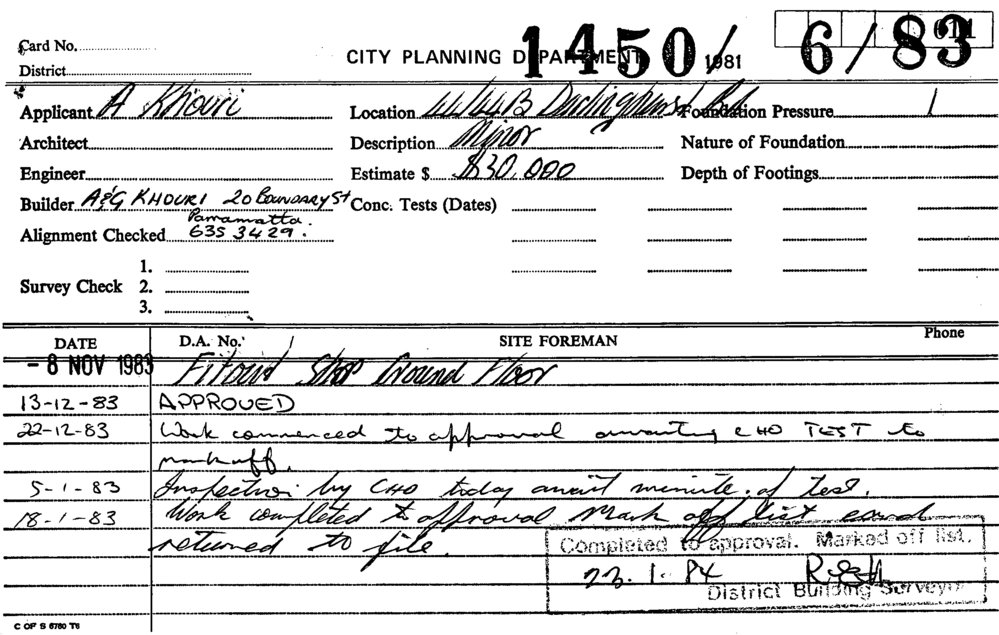 Card No.
CITY PLANNING DEPARTMENT 1450/ 1981 6/83
District
Applicant A Khouri Location 44/44B Darlinghurst Rd Foundation Pressure
Architect Description Minor Nature of Foundation
Engineer Estimate $ $30,000 Depth of Footings
Builder A&G KHOURI 20 BOUNDARY St Conc. Tests (Dates)
Parramatta
Alignment Checked 635 3429.
1.
Survey Check 2.
3.
DATE D.A. No. SITE FOREMAN Phone
- 8 NOV 1983 Fitout Shop Ground Floor
13-12-83 APPROVED
22-12-83 Work commenced to approval awaiting CHO TEST to
markoff.
5-1-83 Inspection by CHO today await minute of test.
18-1-83 Work completed to approval Mark off list card
returned to file.
Completed to approval. Marked off list.
23.1.84
District Building Surveyor
C OF S 6780 T6